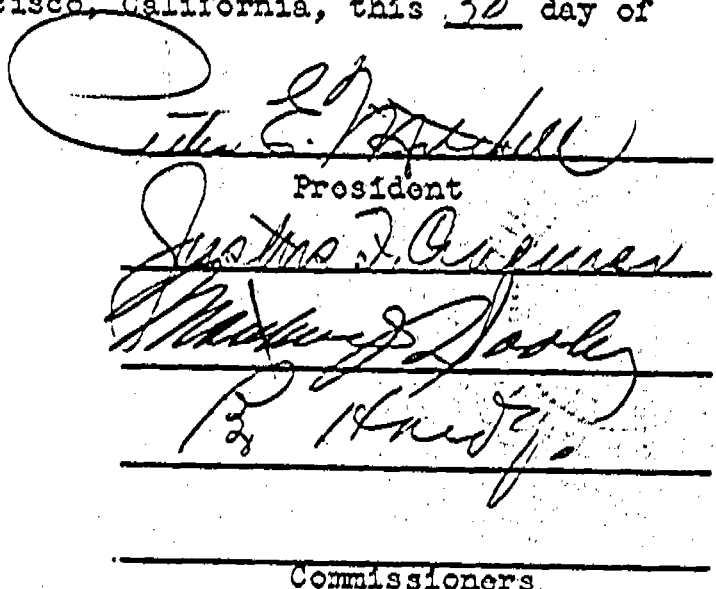 cisco, California, this 30 day of
Peter E. Mitchell
President
Justus F. Craemer
Matthew J. Dooley
R Hardy.
Commissioners